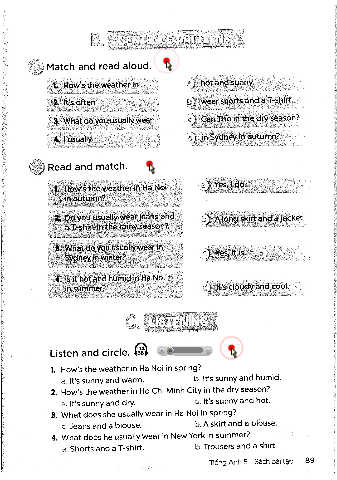 Match and read aloud.
1. How's the weather in
hot and sunny
2. It's often
wear shorts and a T-shirt.
3. What do you usually wear
Can Tho in the dry season?
4. I usually
in Sydney in autumn?
Read and match.
1. How's the weather in Ha Noi
in autumn?
Yes, I do.
2. Do you usually wear jeans and
a T-shirt in the rainy season?
A long skirt and a jacket.
3. What do you usually wear in
Sydney in winter?
Yes, it is.
4. Is it hot and humid in Ha Noi
in summer?
It's cloudy and cool.
C. LISTENING
Listen and circle.
1. How's the weather in Ha Noi in spring?
a. It's sunny and warm. b. It's sunny and humid.
2. How's the weather in Ho Chi Minh City in the dry season?
a. It's sunny and dry. b. It's sunny and hot.
3. What does she usually wear in Ha Noi in spring?
a. Jeans and a blouse. b. A skirt and a blouse.
4. What does he usually wear in New York in summer?
a. Shorts and a T-shirt. b. Trousers and a shirt.
Tiếng Anh 5 - Sách bài tập 89